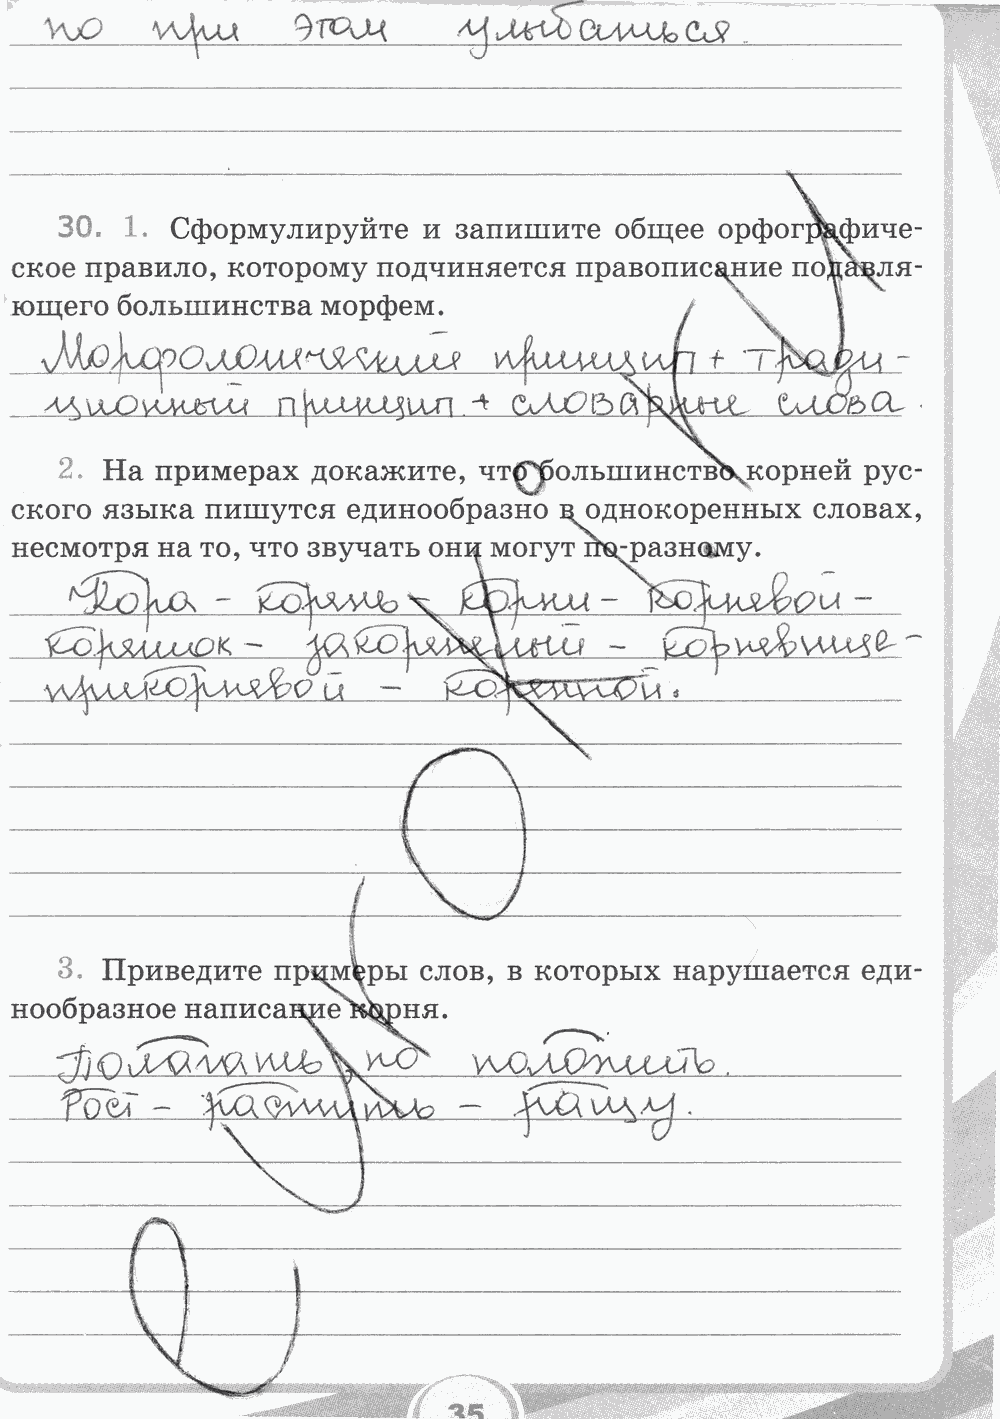 но при этом улыбаться.
30. 1. Сформулируйте и запишите общее орфографиче-
ское правило, которому подчиняется правописание подавля-
ющего большинства морфем.
Морфологический принцип + тради-
ционный принцип + словарные слова.
2. На примерах докажите, что большинство корней рус-
ского языка пишутся единообразно в однокоренных словах,
несмотря на то, что звучать они могут по-разному.
Кора - корень - корни - корневой -
корешок - закоренелый - корневище -
прикорневой - коренной.
3. Приведите примеры слов, в которых нарушается еди-
нообразное написание корня.
Полагать, но положить.
Рост - растить - ращу.
35